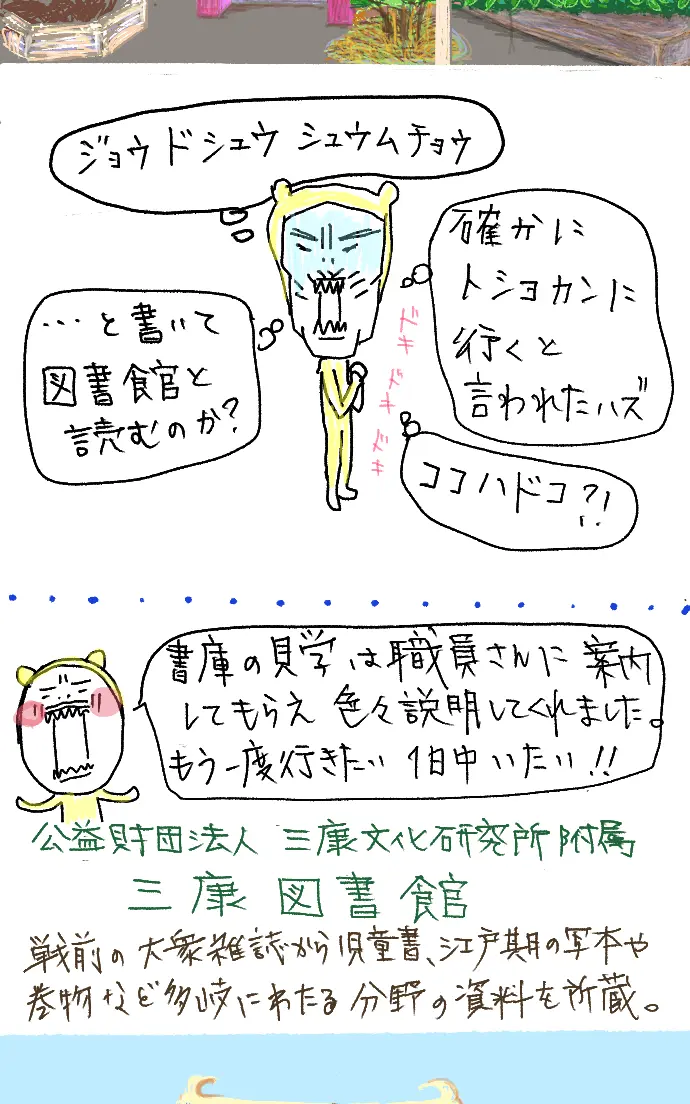 ジョウドシュウ シュウムチョウ
確かに
トショカンに
行くと
言われたハズ
…と書いて
図書館と
読むのか?
ドキ
ドキ
ドキ
ココハドコ?!
書庫の見学は職員さんに案内
してもらえ色々説明してくれました。
もう一度行きたい 1日中いたい!!
公益財団法人 三康文化研究所附属
三康図書館
戦前の大衆雑誌から児童書、江戸期の写本や
巻物など多岐にわたる分野の資料を所蔵。